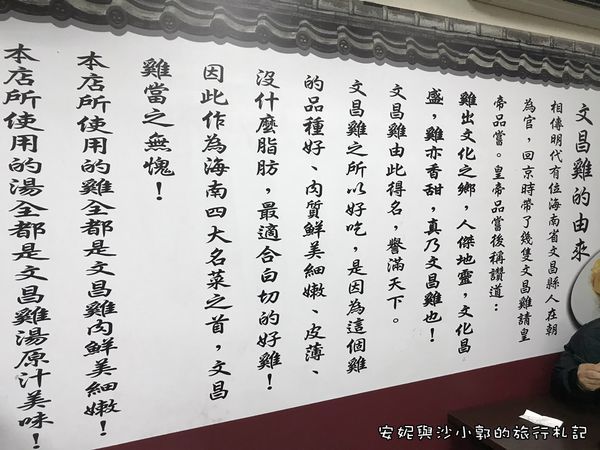 文昌雞的由來
相傳明代有位海南省文昌縣人在朝
為官，回京時帶了幾隻文昌雞請皇
帝品嘗。皇帝品嘗後稱讚道：
雞出文化之鄉，人傑地靈，文化昌
盛，雞亦香甜，真乃文昌雞也！
文昌雞由此得名，譽滿天下。
文昌雞之所以好吃，是因為這個雞
的品種好、肉質鮮美細嫩、皮薄、
沒什麼脂肪，最適合白切的好雞！
因此作為海南四大名菜之首，文昌
雞當之無愧！
本店所使用的雞全都是文昌雞肉鮮美細嫩！
本店所使用的湯全都是文昌雞湯原汁美味！
安妮與沙小郭的旅行札記